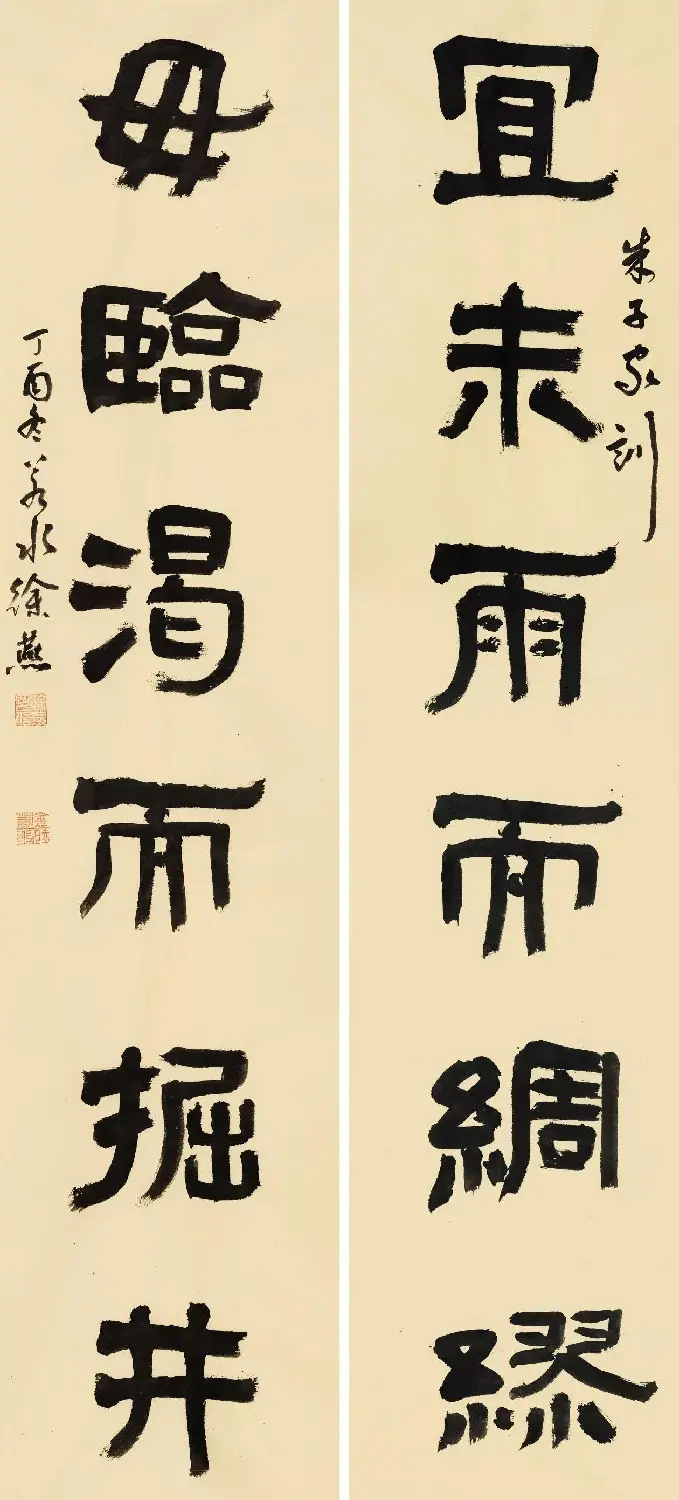 朱子家訓
宜未雨而綢繆
毋臨渴而掘井
丁酉冬若水徐燕